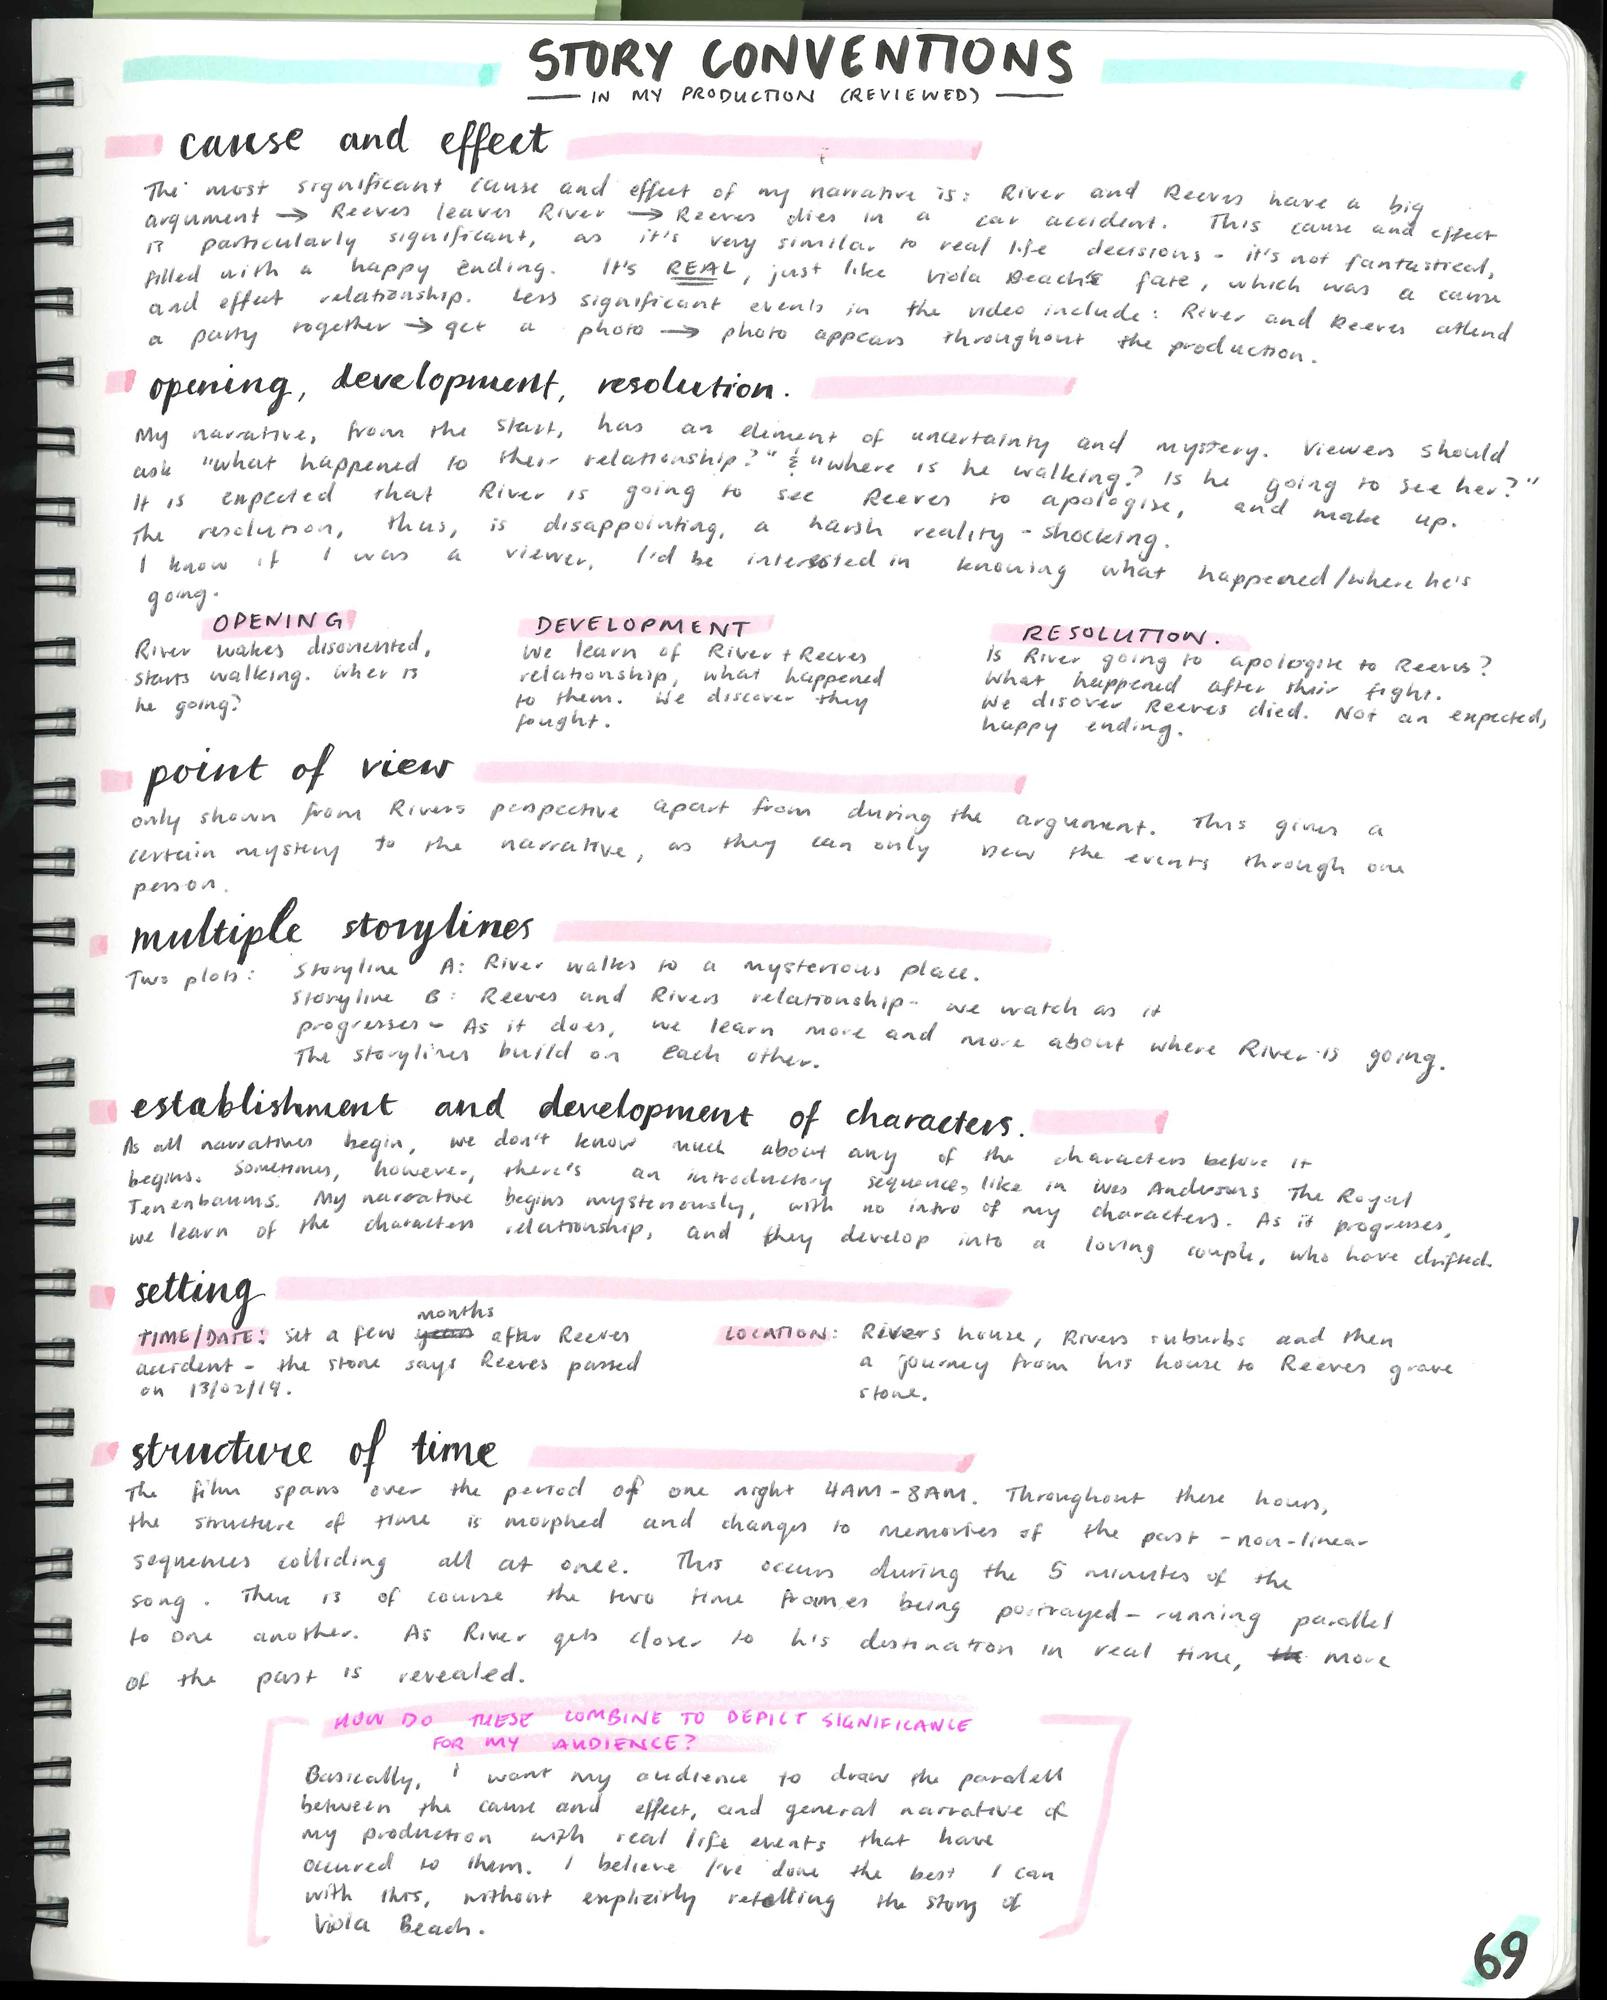 STORY CONVENTIONS
— IN MY PRODUCTION (REVIEWED) —
cause and effect
The most significant cause and effect of my narrative is: River and Reeves have a big
argument → Reeves leaves River → Reeves dies in a car accident. This cause and effect
is particularly significant, as it's very similar to real life decisions - it's not fantastical,
filled with a happy ending. It's REAL, just like Viola Beach's fate, which was a cause
and effect relationship. Less significant events in the video include: River and Reeves attend
a party together → get a photo → photo appears throughout the production.
opening, development, resolution.
My narrative, from the start, has an element of uncertainty and mystery. Viewers should
ask "what happened to their relationship?" & "where is he walking? Is he going to see her?"
It is expected that River is going to see Reeves to apologise, and make up.
The resolution, thus, is disappointing, a harsh reality - shocking.
I know if I was a viewer, I'd be interested in knowing what happened/where he's
going.
OPENING
River wakes disoriented,
starts walking. wher is
he going?
DEVELOPMENT
We learn of River + Reeves
relationship, what happened
to them. We discover they
fought.
RESOLUTION.
Is River going to apologise to Reeves?
What happened after their fight.
We disover Reeves died. Not an expected,
happy ending.
point of view
only shown from Rivers perspective apart from during the argument. This gives a
certain mystery to the narrative, as they can only view the events through one
person.
multiple storylines
Two plots: Storyline A: River walks to a mysterious place.
Storyline B: Reeves and Rivers relationship - we watch as it
progresses - As it does, we learn more and more about where River is going.
The storylines build on each other.
establishment and development of characters.
As all narratives begin, we don't know much about any of the characters before it
begins. Sometimes, however, there's an introductory sequence, like in Wes Andersons The Royal
Tenenbaums. My narrative begins mysteriously, with no intro of my characters. As it progresses,
we learn of the characters relationship, and they develop into a loving couple, who have drifted.
setting
months
TIME/DATE: set a few years after Reeves
accident - the stone says Reeves passed
on 13/02/19.
LOCATION: Rivers house, Rivers suburbs and then
a journey from his house to Reeves grave
stone.
structure of time
The film spans over the period of one night 4AM - 8AM. Throughout these hours,
the structure of time is morphed and changes to memories of the past - non-linear
sequences colliding all at once. This occurs during the 5 minutes of the
song. There is of course the two time frames being portrayed - running parallel
to one another. As River gets closer to his destination in real time, the more
of the past is revealed.
HOW DO THESE COMBINE TO DEPICT SIGNIFICANCE
FOR MY AUDIENCE?
Basically, I want my audience to draw the paralell
between the cause and effect, and general narrative of
my production with real life events that have
occured to them. I believe I've done the best I can
with this, without explicitly retelling the story of
Viola Beach.
69